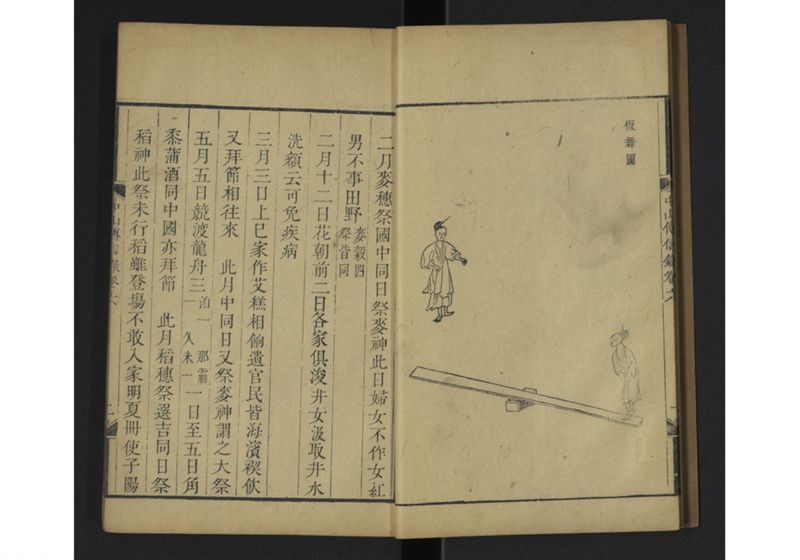 板舞圖
中山傳信錄卷六
二月麥穗祭國中同日祭麥神此日婦女不作女紅
男不事田野麥穀四祭皆同
二月十二日花朝前二日各家俱浚井女汲取井水
洗額云可免疾病
三月三日上巳家作艾糕相餉遺官民皆海濱禊飲
又拜節相往來 此月中同日又祭麥神謂之大祭
五月五日競渡龍舟三泊一那霸一久米一一日至五日角
黍蒲酒同中國亦拜節 此月稻穗祭選吉同日祭
稻神此祭未行稻雖登場不敢入家明夏冊使子陽
中山傳信錄卷六
二